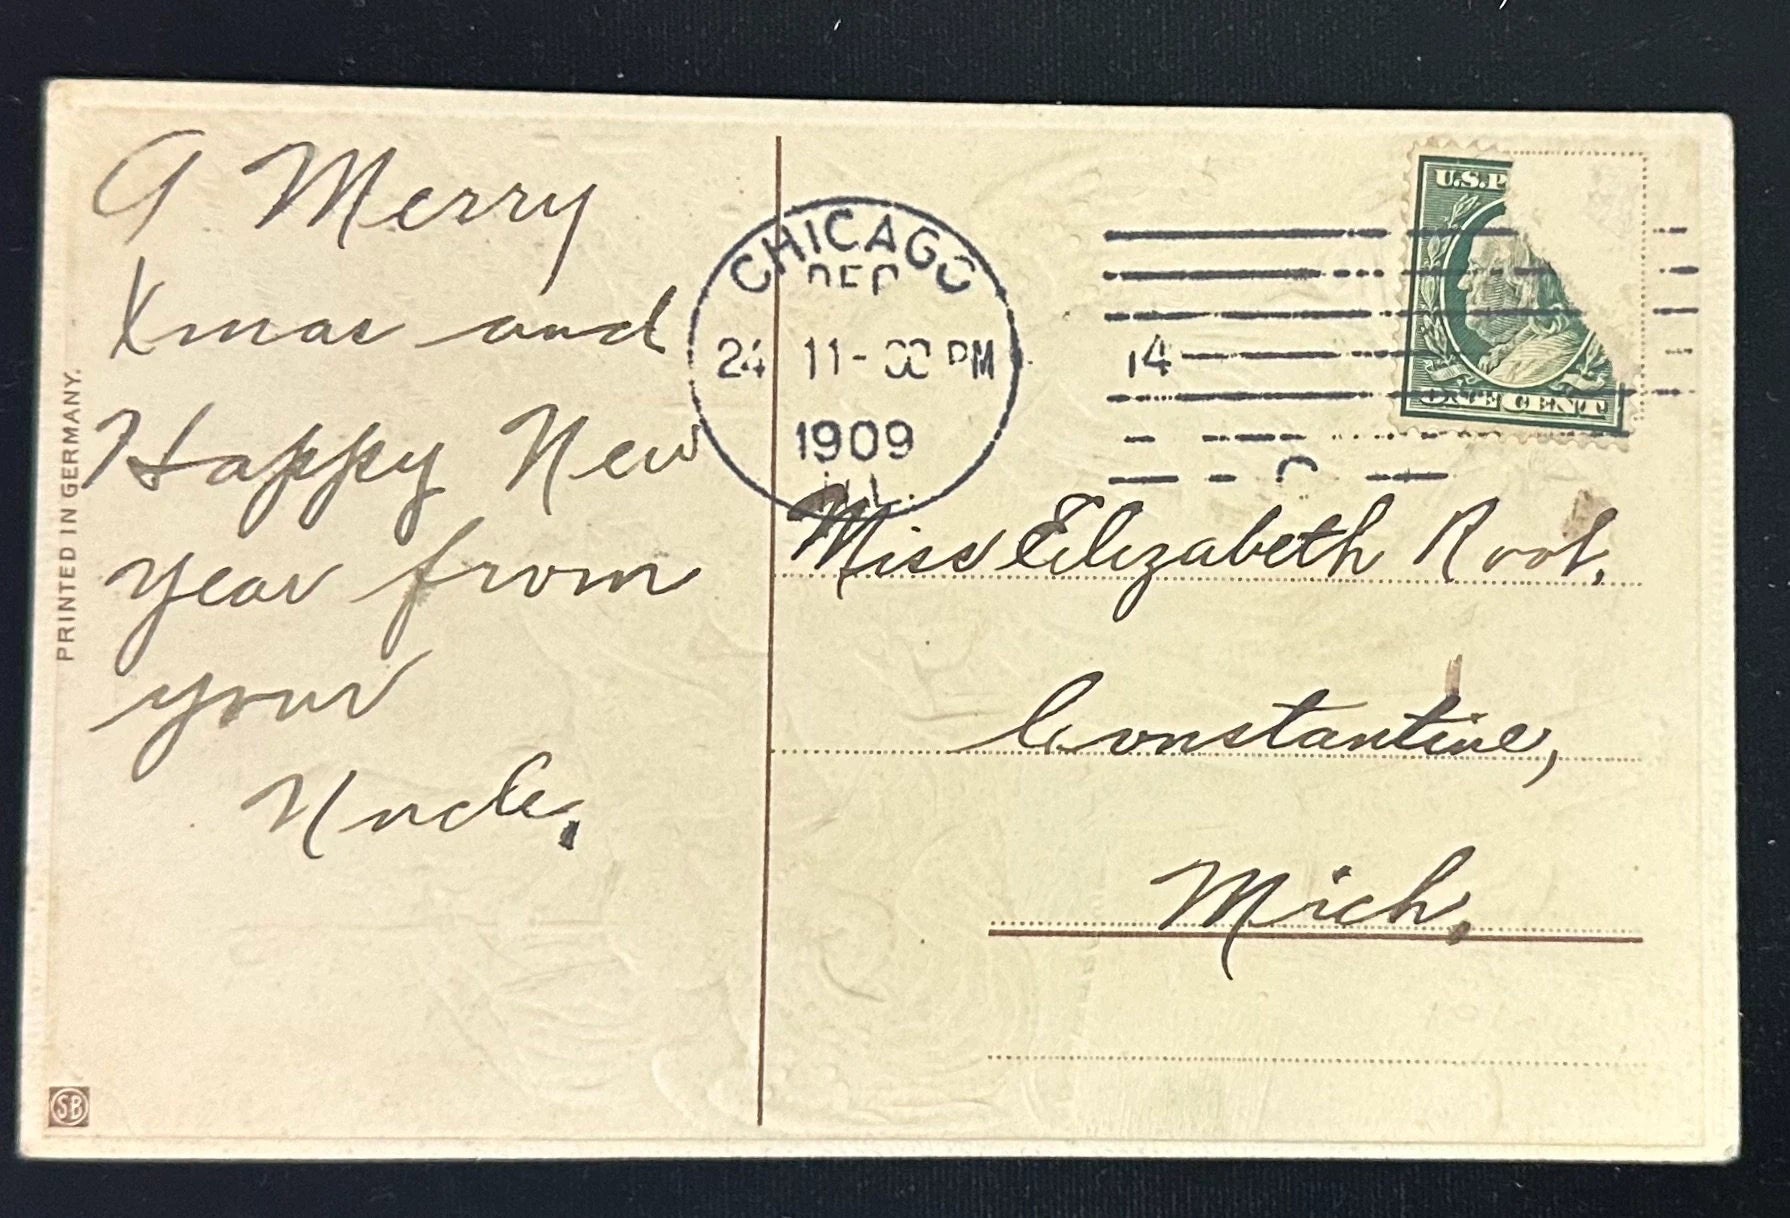 A Merry
Xmas and
Happy New
Year from
your
Uncle.
PRINTED IN GERMANY.
SB
CHICAGO
DEC
24 11-00 PM
1909
ILL.
14
U.S.P
ONE CENT
Miss Elizabeth Root,
Constantine,
Mich.